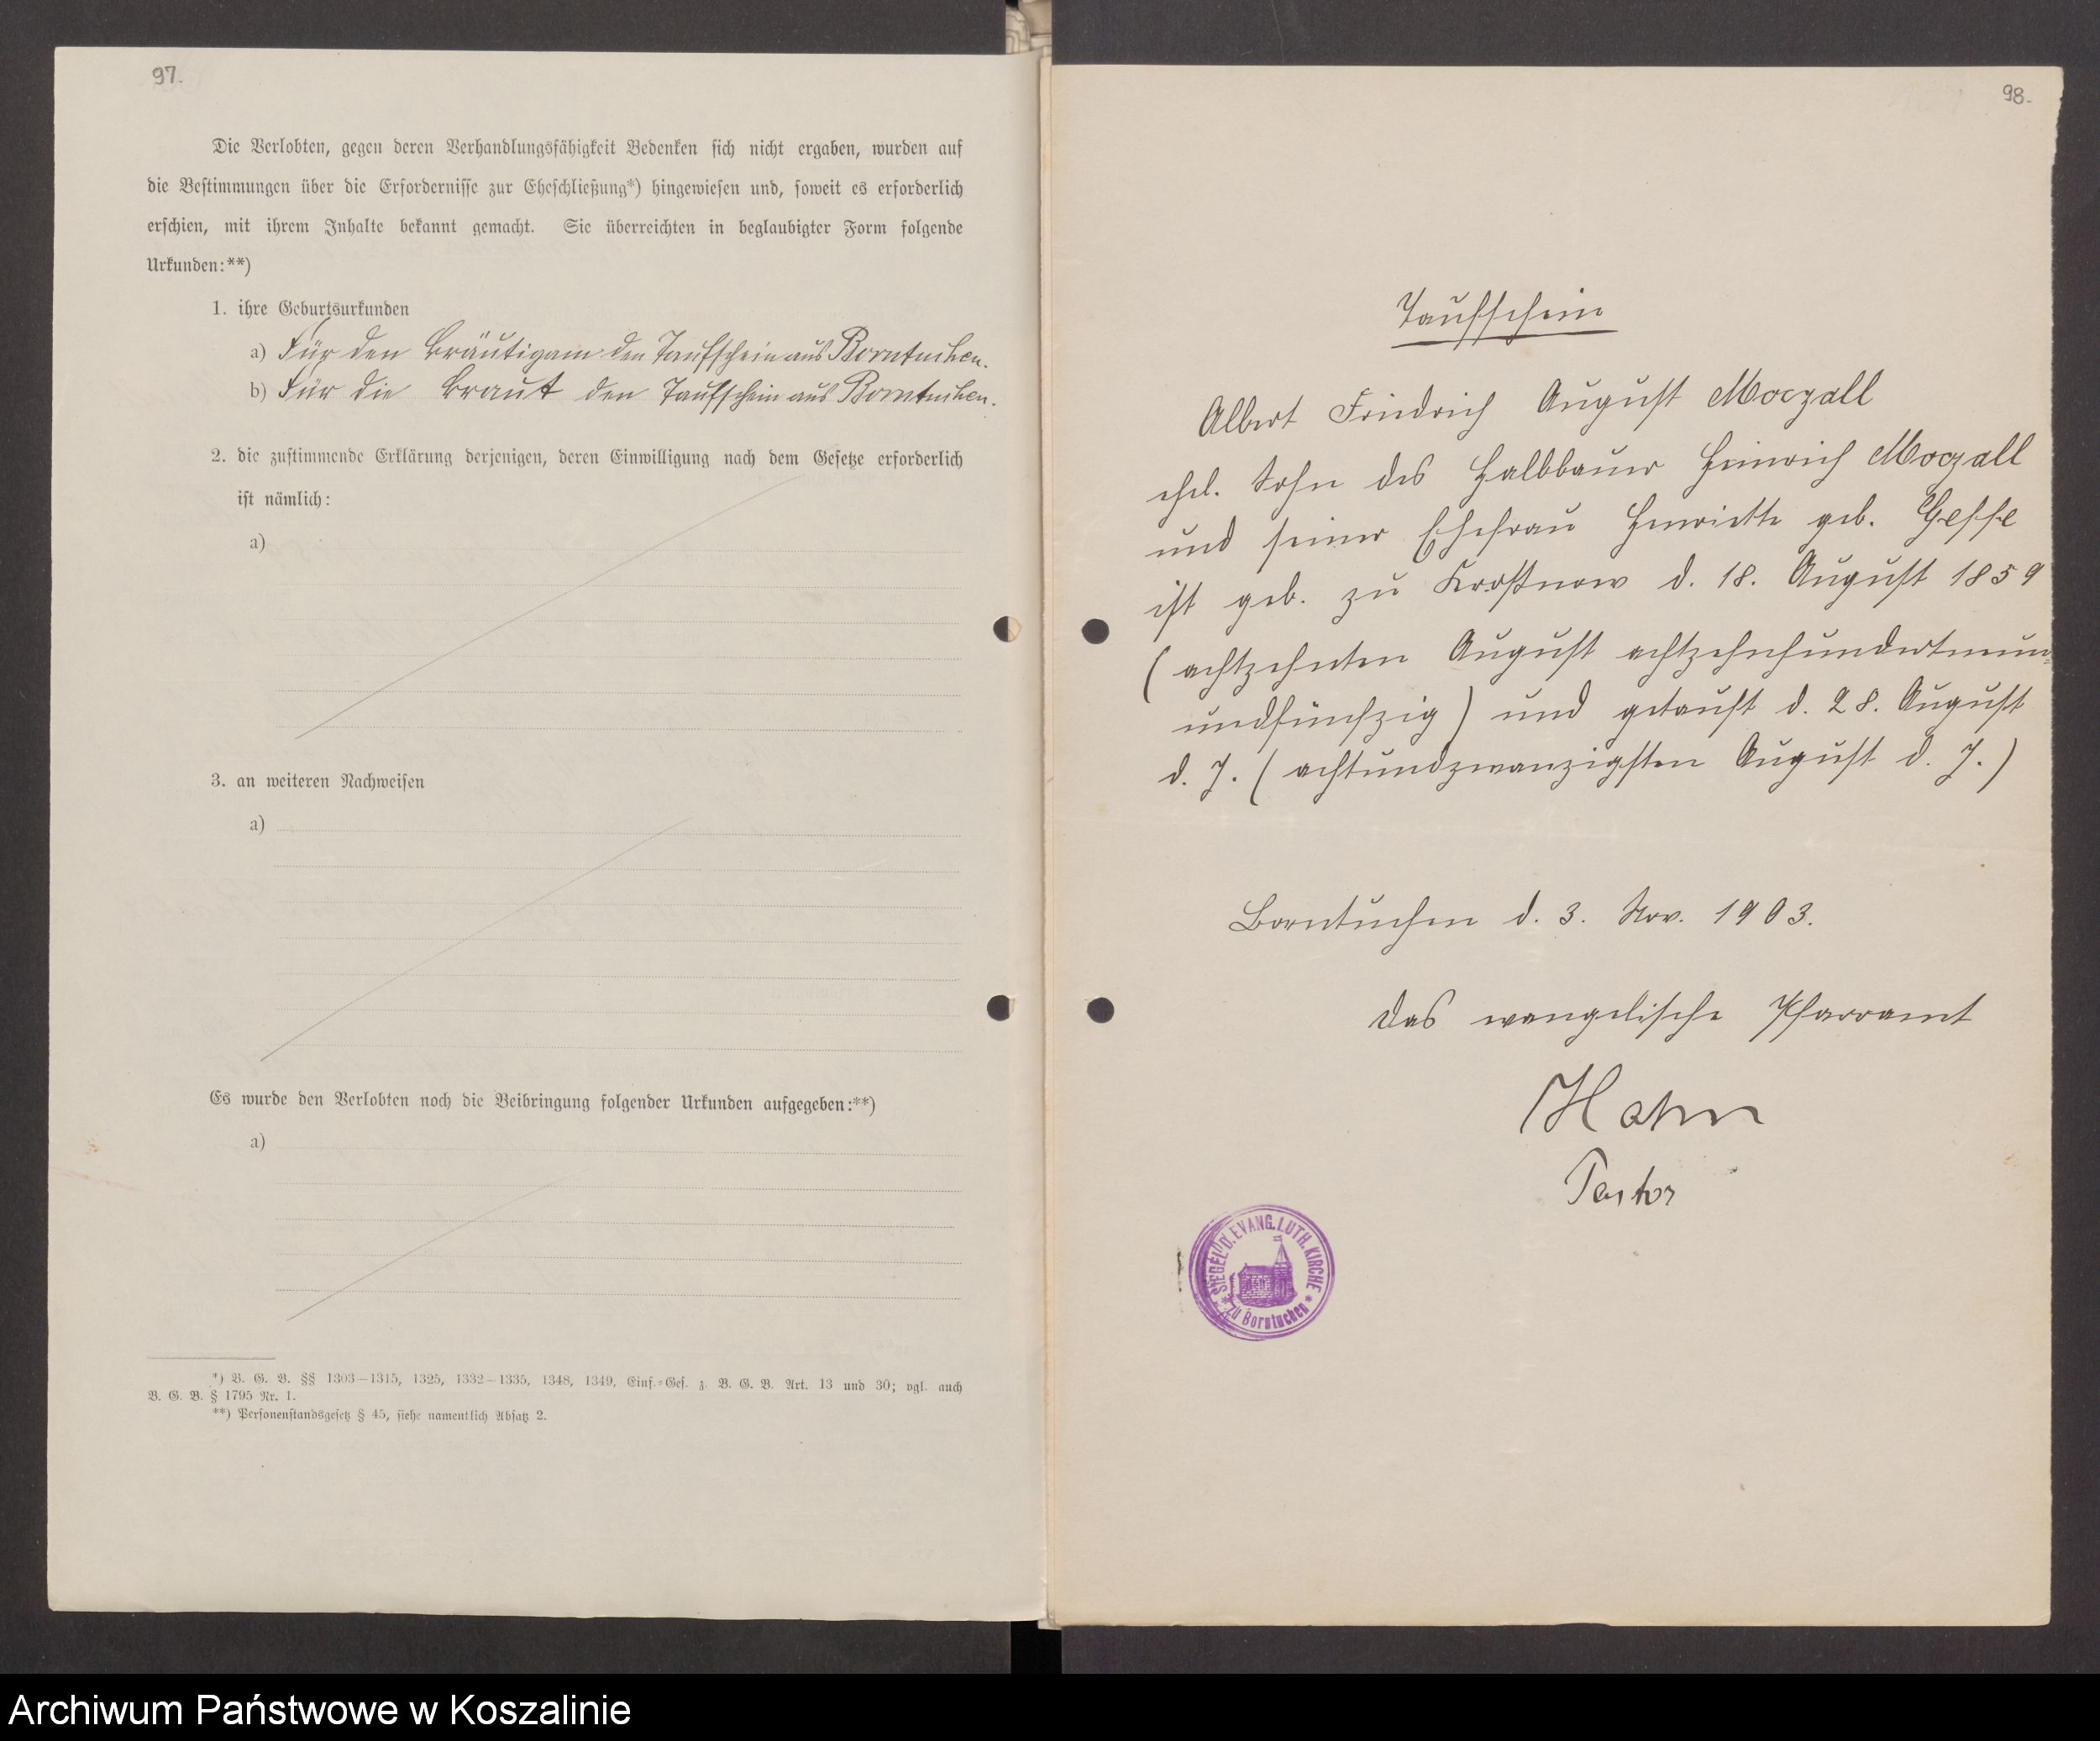 97.
Die Verlobten, gegen deren Verhandlungsfähigkeit Bedenken sich nicht ergaben, wurden auf
die Bestimmungen über die Erfordernisse zur Eheschließung*) hingewiesen und, soweit es erforderlich
erschien, mit ihrem Inhalte bekannt gemacht. Sie überreichten in beglaubigter Form folgende
Urkunden:**)
1. ihre Geburtsurkunden
a) Für den Bräutigam den Taufschein aus Borntuchen.
b) Für die Braut den Taufschein aus Borntuchen.
2. die zustimmende Erklärung derjenigen, deren Einwilligung nach dem Gesetze erforderlich
ist nämlich:
a)
3. an weiteren Nachweisen
a)
Es wurde den Verlobten noch die Beibringung folgender Urkunden aufgegeben:**)
a)
*) B. G. B. §§ 1303—1315, 1325, 1332—1335, 1348, 1349, Einf.=Ges. z. B. G. B. Art. 13 und 30; vgl. auch
B. G. B. § 1795 Nr. 1.
**) Personenstandsgesetz § 45, siehe namentlich Absatz 2.
98.
Taufschein
Albert Friedrich August Moczall
ehel. Sohn des Halbbauer Heinrich Moczall
und seiner Ehefrau Henriette geb. Gesse
ist geb. zu Krossnow d. 18. August 1859
(achtzehnten August achtzehnhundertneun=
undfünfzig) und getauft d. 28. August
d. J. (achtundzwanzigsten August d. J.)
Borntuchen d. 3. Nov. 1903.
Das evangelische Pfarramt
Hahn
Pastor
SIEGEL D. EVANG. LUTH. KIRCHE
* zu Borntuchen *
Archiwum Państwowe w Koszalinie